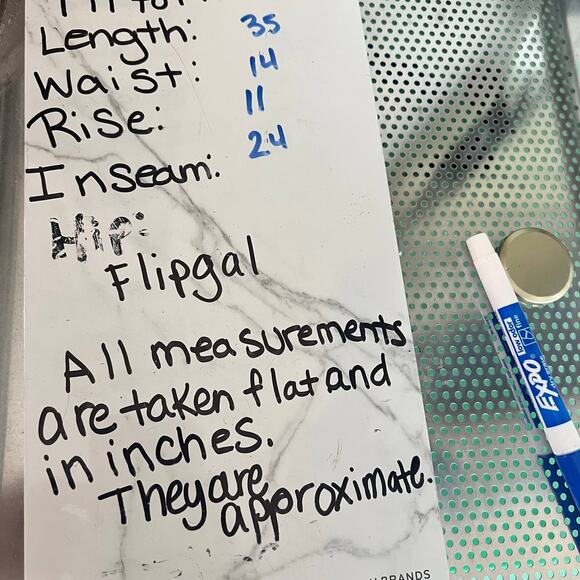 Length: 35
Waist: 14
Rise: 11
Inseam: 24
Hip:
Flipgal
All measurements
are taken flat and
in inches.
They are
approximate.
BRANDS
low odor
fine
EXPO